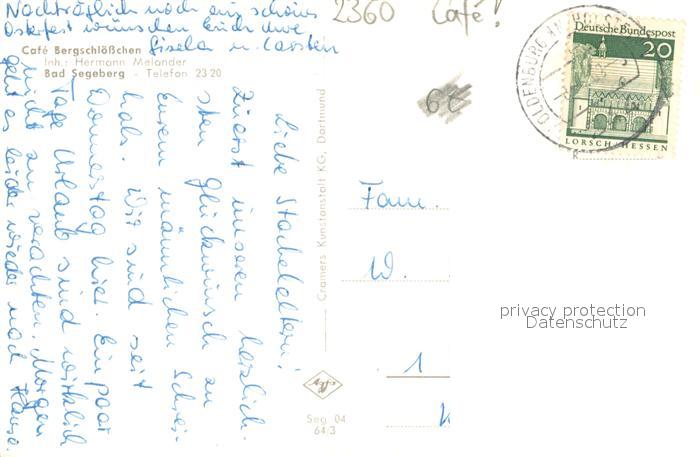 Nachträglich noch ein schönes
Osterfest wünschen Euch Eure
Gisela u. Carsten
2360 Café!
Café Bergschlößchen
Inh.: Hermann Melander
Bad Segeberg - Telefon 23 20
Liebe Stacheleltern!
Zuerst unseren herzlich-
sten Glückwunsch zu
Eurem männlichen Schrei-
hals. Wir sind seit
Donnerstag hier. Ein paar
Tage Urlaub sind wirklich
nicht zu verachten. Morgen
geht es leider wieder nach Hause.
Cramers Kunstanstalt KG, Dortmund
Seg 04
64/3
Fam.
W.
1
OLDENBURG
Deutsche Bundespost
20
LORSCH/HESSEN
privacy protection
Datenschutz